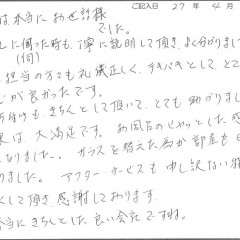 ご記入日 27年4月
は本当にお世話様
でした。
に伺った時も、丁寧に説明して頂き、よく分かりまし
(伺)
担当の方々も礼儀正しく、テキパキとして、と
が良かったです。
片付けも、きちんとして頂いて、とても助かりまし
果は大満足です。お風呂のヒヤッとした感
なりました。ガラスを替えた為か部屋も
りました。アフターサービスも申し訳ない程
くして頂き、感謝しております。
本当にきちんとした良い会社ですね。